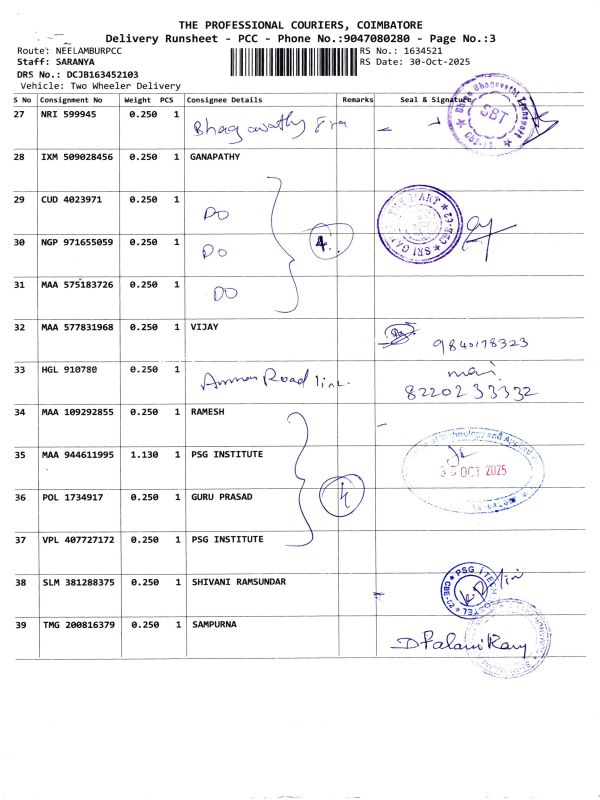 THE PROFESSIONAL COURIERS, COIMBATORE
Delivery Runsheet - PCC - Phone No.:9047080280 - Page No.:3
Route: NEELAMBURPCC
RS No.: 1634521
Staff: SARANYA
RS Date: 30-Oct-2025
DRS No.: DCJB163452103
Vehicle: Two Wheeler Delivery
S No Consignment No Weight PCS Consignee Details Remarks Seal & Signature
27 NRI 599945 0.250 1 Bhagawathy Tra
SBT
28 IXM 509028456 0.250 1 GANAPATHY
29 CUD 4023971 0.250 1 DO
30 NGP 971655059 0.250 1 DO 4.
31 MAA 575183726 0.250 1 DO
32 MAA 577831968 0.250 1 VIJAY 9840178323
33 HGL 910780 0.250 1 Amman Road line. mai
8220233332
34 MAA 109292855 0.250 1 RAMESH
35 MAA 944611995 1.130 1 PSG INSTITUTE 30 OCT 2025
36 POL 1734917 0.250 1 GURU PRASAD 4
37 VPL 407727172 0.250 1 PSG INSTITUTE
38 SLM 381288375 0.250 1 SHIVANI RAMSUNDAR PSG iTECH HOSTEL
39 TMG 200816379 0.250 1 SAMPURNA